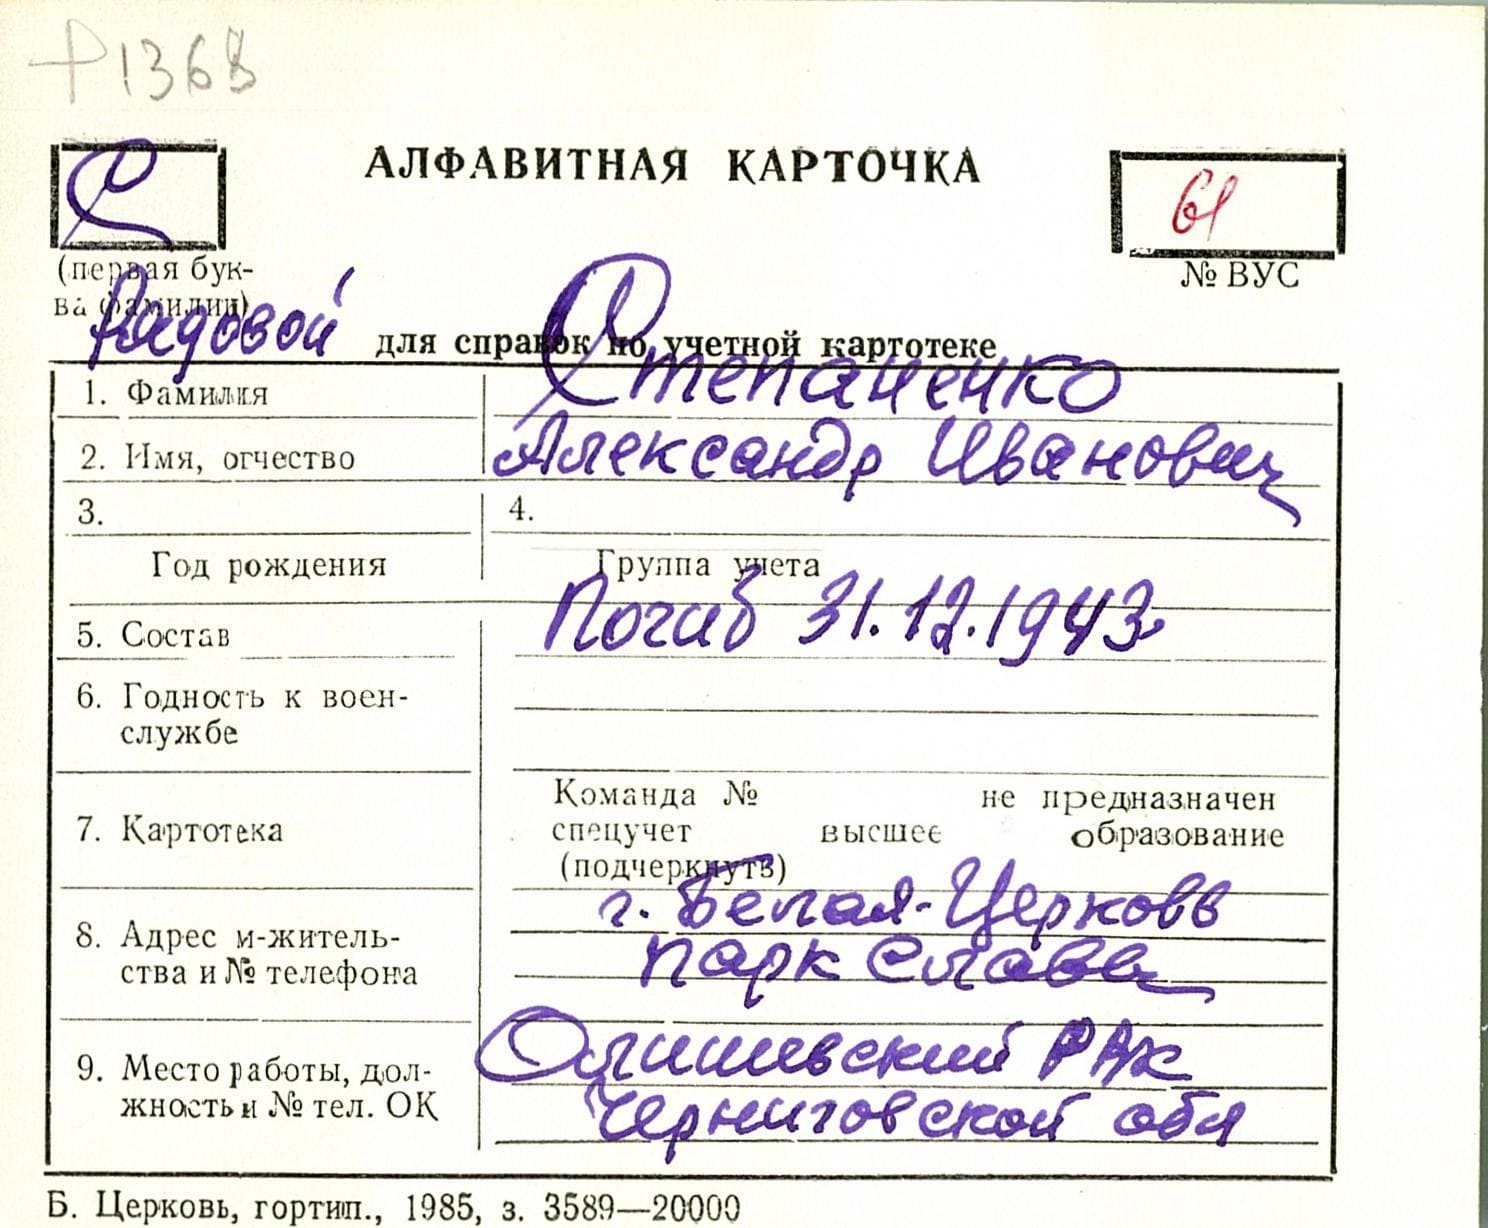 Р1368
С
АЛФАВИТНАЯ КАРТОЧКА
61
(первая бук-
ва фамилии)
№ ВУС
Рядовой
для справок по учетной картотеке
1. Фамилия Степаненко
2. Имя, отчество Александр Иванович
3. 4.
Год рождения Группа учета
Погиб 31.12.1943
5. Состав
6. Годность к воен-
службе
Команда № не предназначен
7. Картотека спецучет высшее образование
(подчеркнуть)
г. Белая-Церковь
8. Адрес м-житель- парк Славы
ства и № телефона
Олишевский РВК
9. Место работы, дол-
жность и № тел. ОК Черниговской обл
Б. Церковь, гортип., 1985, з. 3589—20000